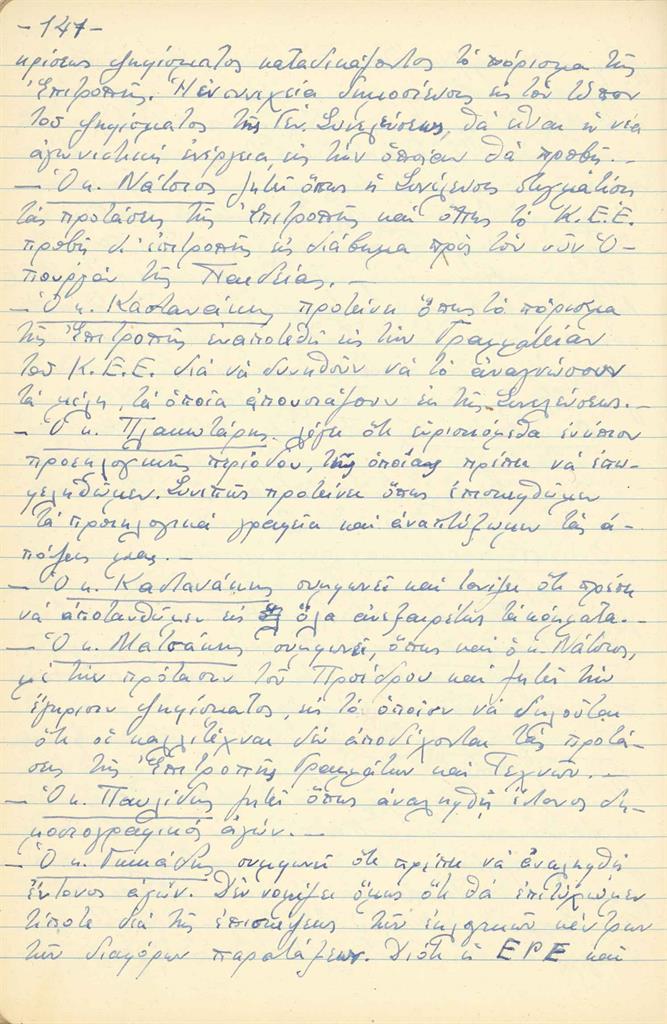 -141-
κρίσεως ψηφίσματος καταδικάζοντος τὸ πόρισμα τῆς
Ἐπιτροπῆς. Ἡ ἐν συνεχείᾳ δημοσίευσις εἰς τὸν τύπον
τοῦ ψηφίσματος τῆς Γεν. Συνελεύσεως, θὰ εἶναι ἡ νέα
ἀγωνιστικὴ ἐνέργεια εἰς τὴν ὁποίαν θὰ προβῇ. —
— Ὁ κ. Νάτσιος ζητεῖ ὅπως ἡ Συνέλευσις στιγματίσῃ
τὰς προτάσεις τῆς Ἐπιτροπῆς καὶ ὅπως τὸ Κ.Ε.Ε.
προβῇ δι' ἐπιτροπῆς εἰς διάβημα πρὸς τὸν νῦν Ὑ-
πουργὸν τῆς Παιδείας. —
— Ὁ κ. Καστανάκης προτείνει ὅπως τὸ πόρισμα
τῆς Ἐπιτροπῆς ἐναποτεθῇ εἰς τὴν Γραμματείαν
τοῦ Κ.Ε.Ε. διὰ νὰ δυνηθοῦν νὰ τὸ ἀναγνώσουν
τὰ μέλη, τὰ ὁποῖα ἀπουσιάζουν ἐκ τῆς Συνελεύσεως. —
— Ὁ κ. Πλακωτάρης λέγει ὅτι εὑρισκόμεθα ἐνώπιον
προεκλογικῆς περιόδου, τῆς ὁποίας πρέπει νὰ ἐπω-
φεληθῶμεν. Συνεπῶς προτείνει ὅπως ἐπισκεφθῶμεν
τὰ προεκλογικὰ γραφεῖα καὶ ἀναπτύξωμεν τὰς ἀ-
πόψεις μας. —
— Ὁ κ. Καστανάκης συμφωνεῖ καὶ τονίζει ὅτι πρέπει
νὰ ἀποτανθῶμεν εἰς ὅλα ἀνεξαιρέτως τὰ κόμματα. —
— Ὁ κ. Ματσάκης συμφωνεῖ, ὅπως καὶ ὁ κ. Νάτσιος,
μὲ τὴν πρότασιν τοῦ Προέδρου καὶ ζητεῖ τὴν
ἔγκρισιν ψηφίσματος, εἰς τὸ ὁποῖον νὰ δηλοῦται
ὅτι οἱ καλλιτέχναι δὲν ἀποδέχονται τὰς προτά-
σεις τῆς Ἐπιτροπῆς Γραμμάτων καὶ Τεχνῶν. —
— Ὁ κ. Παυλίδης ζητεῖ ὅπως ἀναληφθῇ ἔντονος δη-
μοσιογραφικὸς ἀγών. —
— Ὁ κ. συμφωνεῖ ὅτι πρέπει νὰ ἀναληφθῇ
ἔντονος ἀγών. Δὲν νομίζει ὅμως ὅτι θὰ ἐπιτύχωμεν
τίποτε διὰ τῆς ἐπισκέψεως τῶν ἐκλογικῶν κέντρων
τῶν διαφόρων παρατάξεων. Διότι ἡ ΕΡΕ καὶ